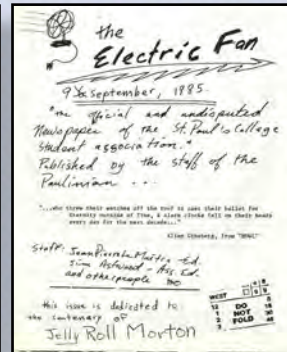 the
Electric Fan
September, 1985.
"The official and undisputed
Newspaper of the St. Paul's College
Student association."
Published by the staff of the
Paulinian ...
"...who threw their watches off the roof to cast their ballot for
Eternity outside of Time, & alarm clocks fell on their heads
every day for the next decade..."
Allen Ginsberg, from "HOWL"
Staff:
Jim Astwood - Ass. Ed.
and other people too
this issue is dedicated to
the centenary of
Jelly Roll Morton
WEST
DO
NOT
FOLD